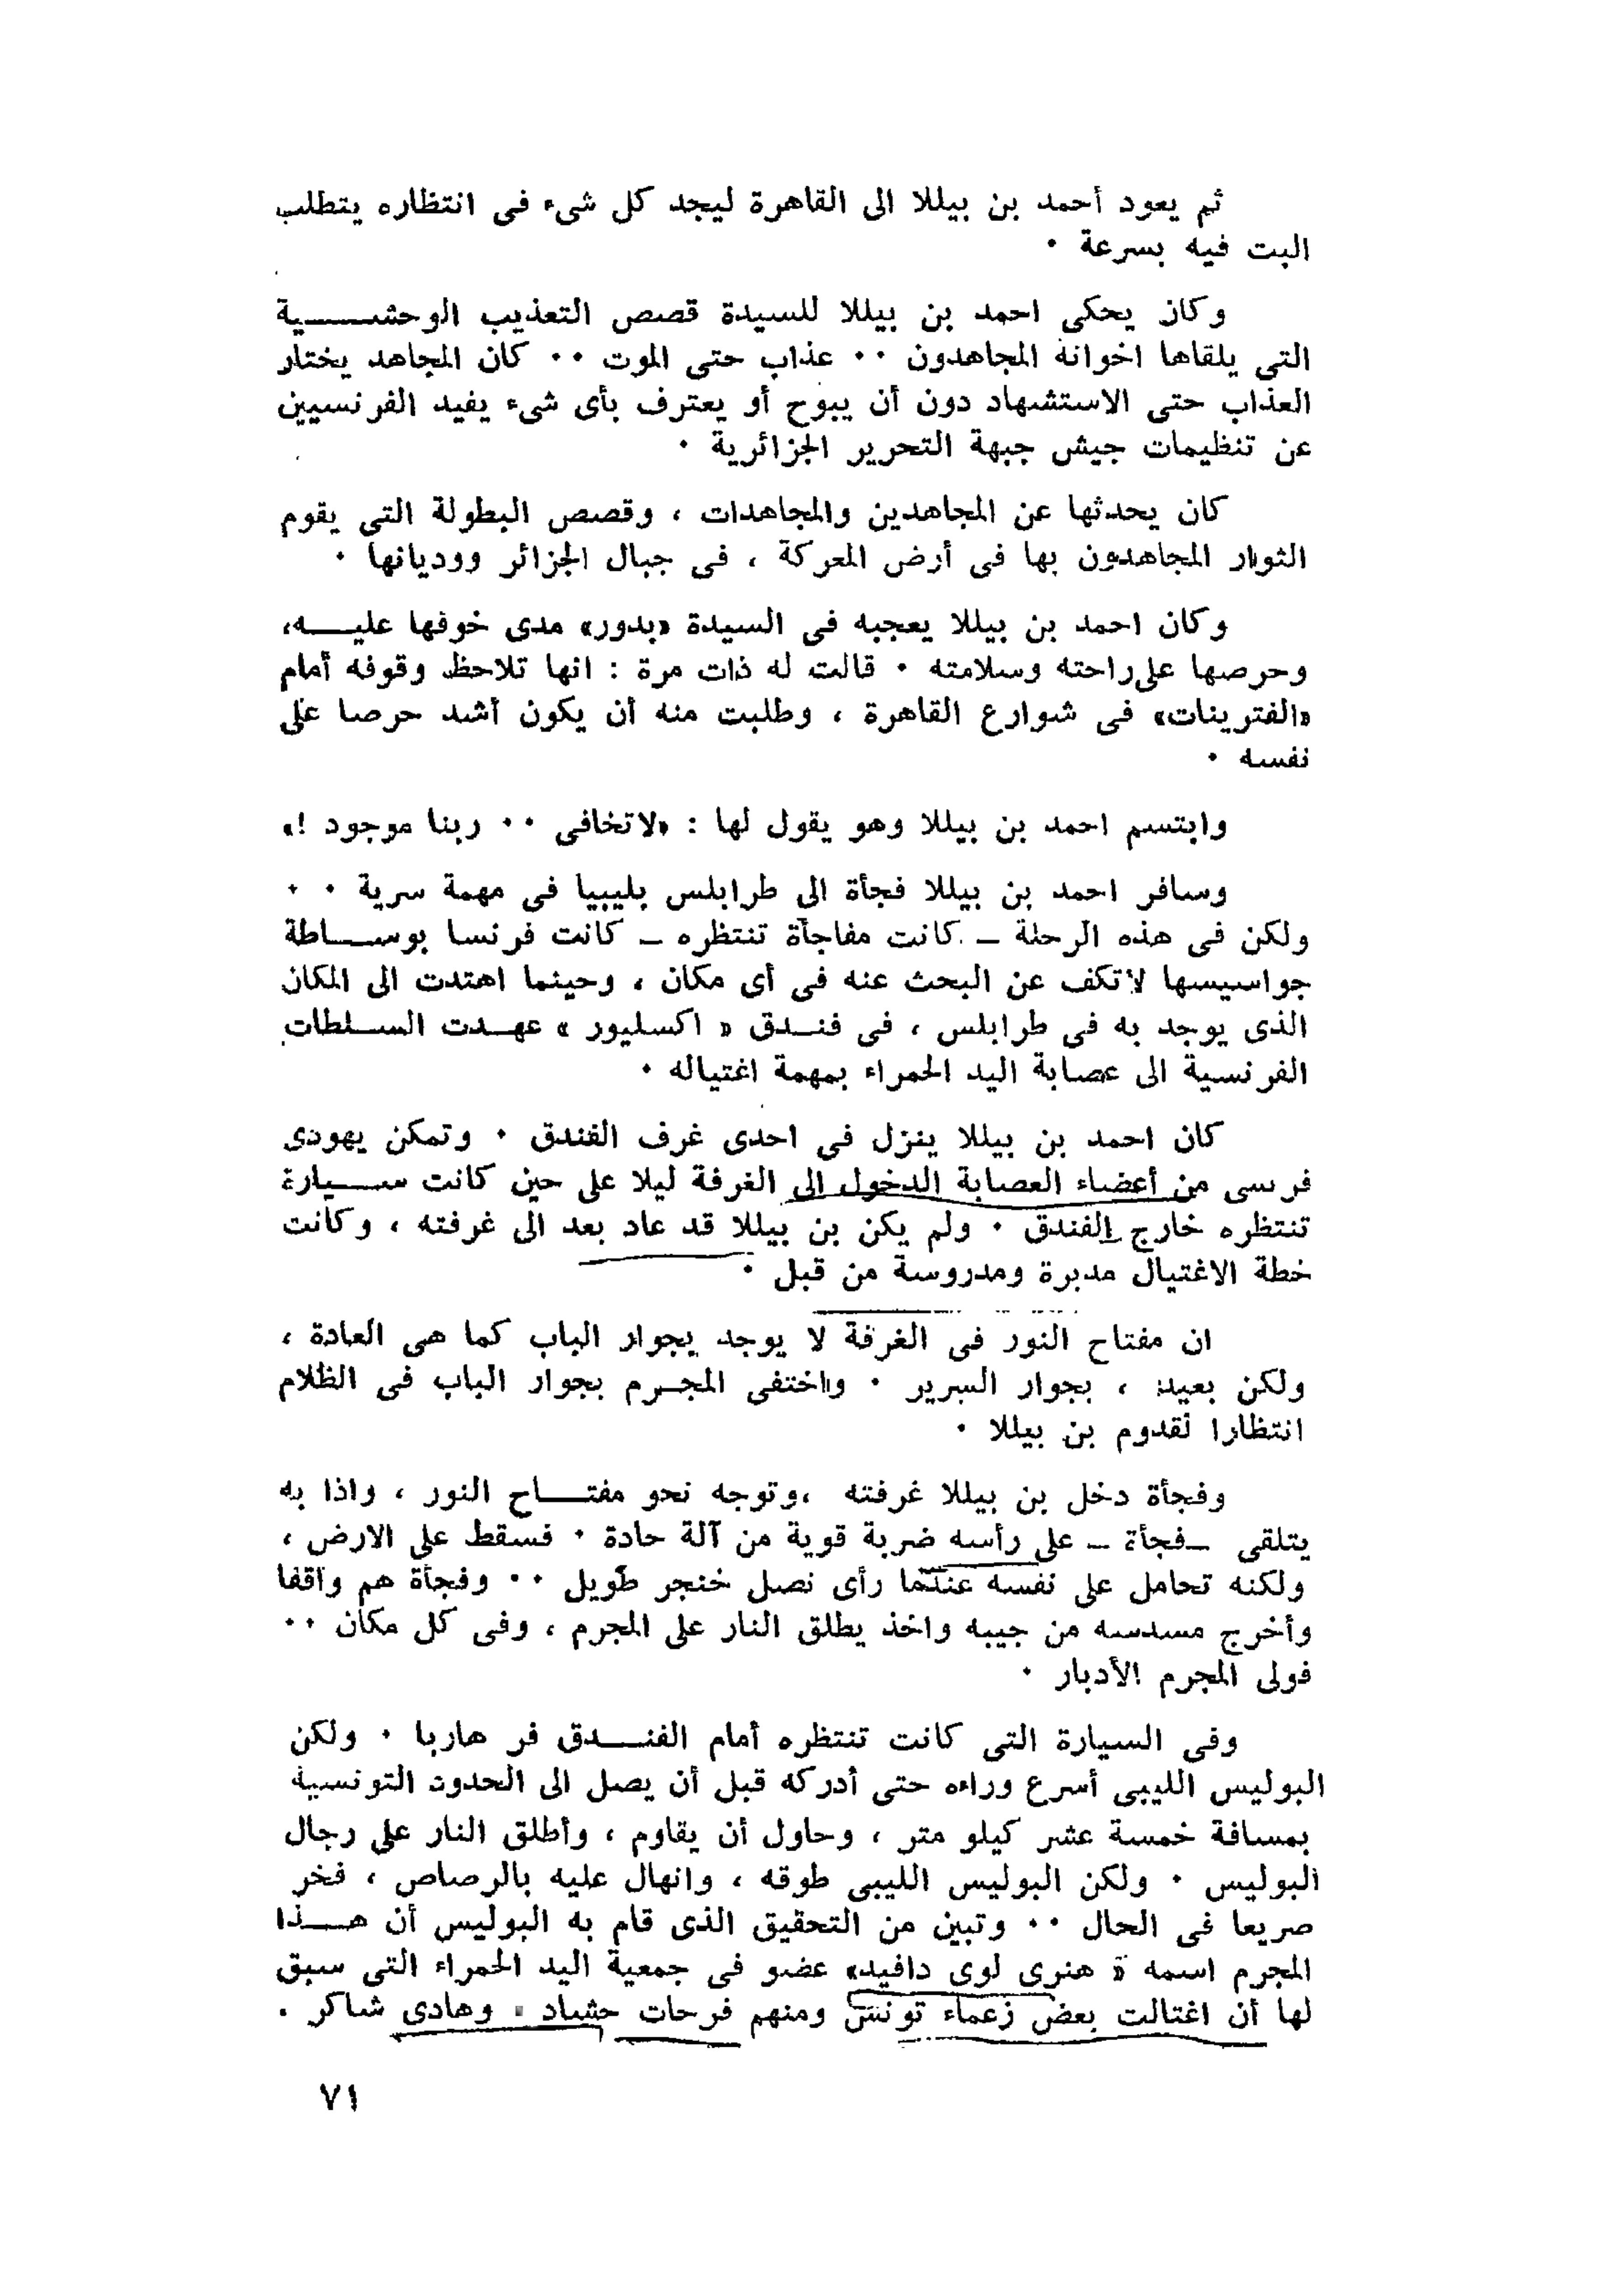 ثم يعود أحمد بن بيللا الى القاهرة ليجد كل شىء فى انتظاره يتطلب
البت فيه بسرعة ٠
وكان يحكى احمد بن بيللا للسيدة قصص التعذيب الوحشـــــية
التي يلقاها اخوانه المجاهدون ٠٠ عذاب حتى الموت ٠٠ كان المجاهد يختار
العذاب حتى الاستشهاد دون أن يبوح أو يعترف بأى شىء يفيد الفرنسيين
عن تنظيمات جيش جبهة التحرير الجزائرية ٠
كان يحدثها عن المجاهدين والمجاهدات ، وقصص البطولة التى يقوم
الثوار المجاهدون بها فى أرض المعركة ، فى جبال الجزائر ووديانها ٠
وكان احمد بن بيللا يعجبه فى السيدة «بدور» مدى خوفها عليـــه،
وحرصها على راحته وسلامته ٠ قالت له ذات مرة : انها تلاحظ وقوفه أمام
«الفترينات» فى شوارع القاهرة ، وطلبت منه أن يكون أشد حرصا على
نفسه ٠
وابتسم احمد بن بيللا وهو يقول لها : «لاتخافى ٠٠ ربنا موجود !»
وسافر احمد بن بيللا فجأة الى طرابلس بليبيا فى مهمة سرية ٠ ٠
ولكن فى هذه الرحلة ـ كانت مفاجأة تنتظره ـ كانت فرنسا بوســاطة
جواسيسها لاتكف عن البحث عنه فى أى مكان ، وحينما اهتدت الى المكان
الذى يوجد به فى طرابلس ، فى فنــدق « اكسليور » عهــدت الســلطات
الفرنسية الى عصابة اليد الحمراء بمهمة اغتياله ٠
كان احمد بن بيللا ينزل فى احدى غرف الفندق ٠ وتمكن يهودى
فرنسى من أعضاء العصابة الدخول الى الغرفة ليلا على حين كانت ســيارة
تنتظره خارج الفندق ٠ ولم يكن بن بيللا قد عاد بعد الى غرفته ، وكانت
خطة الاغتيال مدبرة ومدروسة من قبل ٠
ان مفتاح النور فى الغرفة لا يوجد بجوار الباب كما هى العادة ،
ولكن بعيد ، بجوار السرير ٠ واختفى المجــرم بجوار الباب فى الظلام
انتظارا لقدوم بن بيللا ٠
وفجأة دخل بن بيللا غرفته ،وتوجه نحو مفتـــاح النور ، واذا به
يتلقى ـ فجأة ـ على رأسه ضربة قوية من آلة حادة ٠ فسقط على الارض ،
ولكنه تحامل على نفسه عندما رأى نصل خنجر طويل ٠٠ وفجأة هم واقفا
وأخرج مسدسه من جيبه واخذ يطلق النار على المجرم ، وفى كل مكان ٠٠
فولى المجرم الأدبار ٠
وفى السيارة التى كانت تنتظره أمام الفنـــدق فر هاربا ٠ ولكن
البوليس الليبى أسرع وراءه حتى أدركه قبل أن يصل الى الحدود التونسية
بمسافة خمسة عشر كيلو متر ، وحاول أن يقاوم ، وأطلق النار على رجال
البوليس ٠ ولكن البوليس الليبى طوقه ، وانهال عليه بالرصاص ، فخر
صريعا فى الحال ٠٠ وتبين من التحقيق الذى قام به البوليس أن هـــذا
المجرم اسمه « هنرى لوى دافيد» عضو فى جمعية اليد الحمراء التى سبق
لها أن اغتالت بعض زعماء تونس ومنهم فرحات حشاد ، وهادى شاكر ٠
٧١